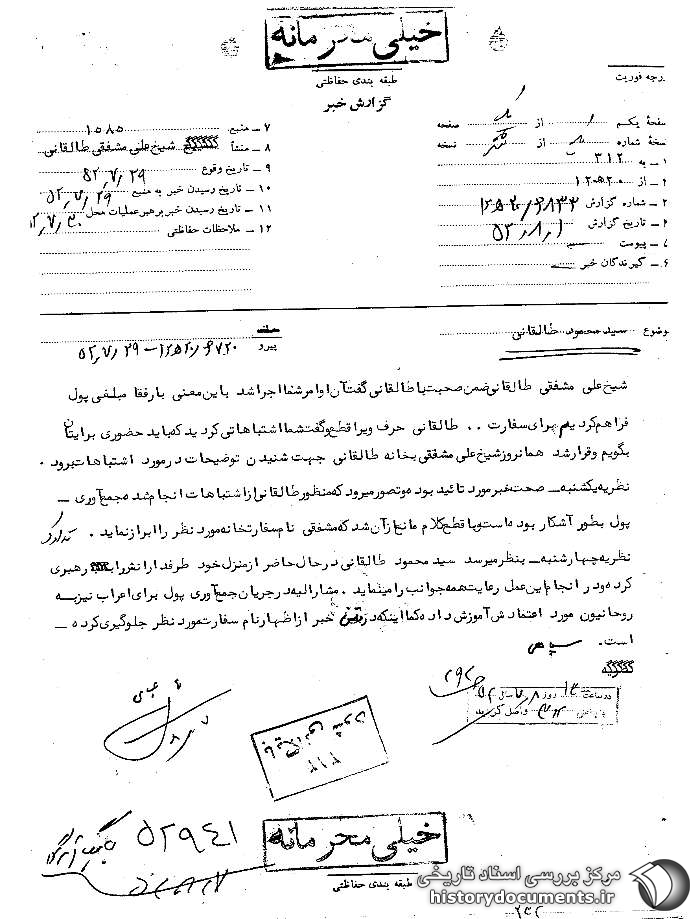 خیلی محرمانه
طبقه بندی حفاظتی
گزارش خبر
درجه فوریت
صفحهٔ یکم ۱ از ۱ صفحه
نسخهٔ شماره از نسخه
۱ ـ به ۳۱۲
۲ ـ از ۱۲۰ﻫ۲۰
۳ ـ شماره گزارش
۴ ـ تاریخ گزارش ۵۲٫۸٫۱
۵ ـ پیوست
۶ ـ گیرندگان خبر
۷ ـ منبع ۱۰۸۵
۸ ـ منشأ شیخ علی مشفقی طالقانی
۹ ـ تاریخ وقوع ۵۲٫۷٫۲۹
۱۰ ـ تاریخ رسیدن خبر به منبع ۵۲٫۷٫۲۹
۱۱ ـ تاریخ رسیدن خبر برهبر عملیات محل ۵۲٫۷٫۳۰
۱۲ ـ ملاحظات حفاظتی
موضوع سید محمود طالقانی
پیرو ۵۲٫۷٫۲۹
شیخ علی مشفقی طالقانی ضمن صحبت با طالقانی گفت آن اوامر شما اجرا شد باین معنی با رفقا مبلغی پول
فراهم کردیم برای سفارت .. طالقانی حرف ویرا قطع و گفت شما اشتباهاتی کردید که باید حضوری برایتان
بگویم و قرار شد همانروز شیخ علی مشفقی بخانه طالقانی جهت شنیدن توضیحات در مورد اشتباهات برود .
نظریه یکشنبه ـ صحت خبر مورد تائید بوده و تصور میرود که منظور طالقانی از اشتباهات انجام شده جمع آوری ـ
پول بطور آشکار بوده است و با قطع کلام مانع از آن شد که مشفقی نام سفارتخانه مورد نظر را ابراز نماید .
نظریه چهارشنبه ـ بنظر میرسد سید محمود طالقانی در حال حاضر از منزل خود طرفدارانش را رهبری
کرده و در انجام این عمل رعایت همه جوانب را مینماید . مشارالیه در جریان جمع آوری پول برای اعراب نیز به
روحانیون مورد اعتمادش آموزش داده کما اینکه در متن خبر از اظهار نام سفارت مورد نظر جلوگیری کرده ـ
است .
در ساعت ۱۳ روز ۸ سال ۵۲
واصل گردید
۳۱۲
۵۲۹۴۱
خیلی محرمانه
طبقه بندی حفاظتی
مرکز بررسی اسناد تاریخی
historydocuments.ir